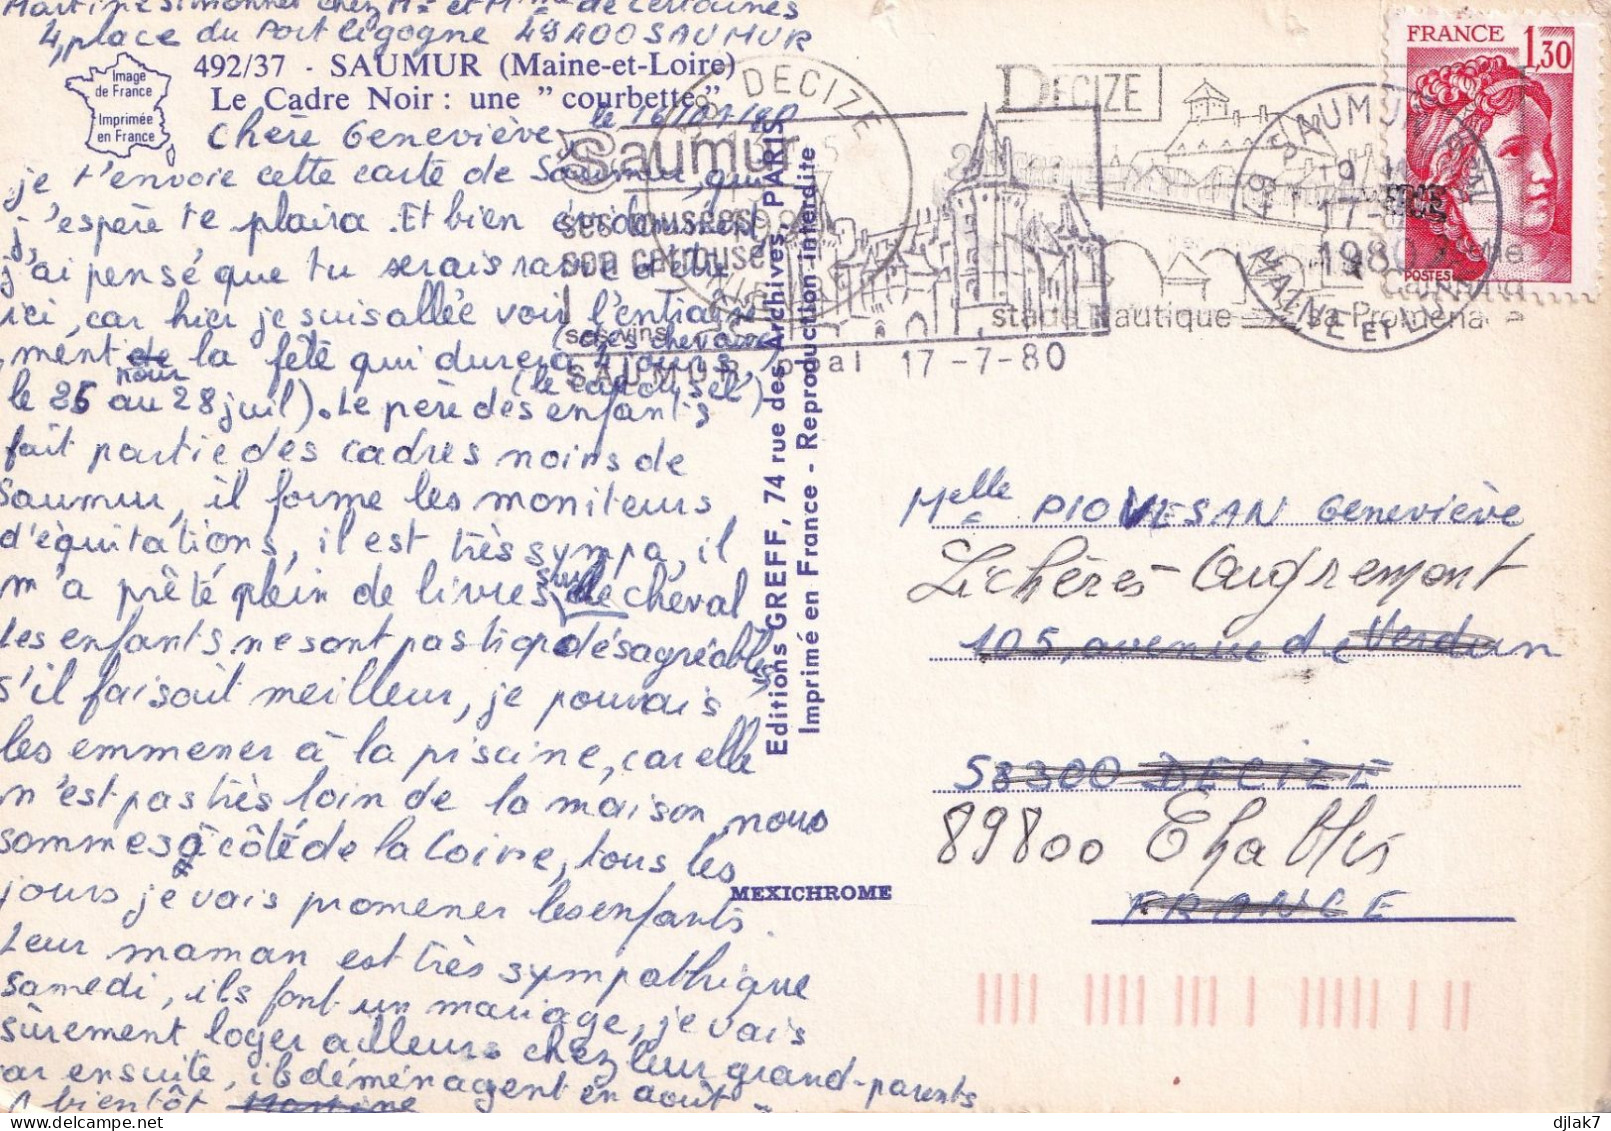 Martine Simonnet chez Mr et Mme de Certaines
4, place du Port Cigogne 49400 SAUMUR
492/37 - SAUMUR (Maine-et-Loire)
Le Cadre Noir : une " courbette "
Image
de France
Imprimée
en France
le 16/07/80
Chère Geneviève,
je t'envoie cette carte de Saumur, qui
j'espère te plaira. Et bien évidemment
j'ai pensé que tu serais ravie d'être
ici, car hier je suis allée voir l'entraîne
ment de la fête qui durera 4 jours,
(des chevaux)
(le carousel)
le 25 au 28 juil). Le père des enfants
fait partie des cadres noirs de
Saumur, il forme les moniteurs
d'équitations, il est très sympa, il
m'a prêté plein de livres sur le cheval
Les enfants ne sont pas trop désagréables
s'il faisait meilleur, je pouvais
les emmener à la piscine, car elle
n'est pas très loin de la maison, nous
sommes à côté de la Loire, tous les
jours je vais promener les enfants.
Leur maman est très sympathique
samedi, ils font un mariage, je vais
sûrement loger ailleurs chez leur grand-parents
car ensuite, ils déménagent en août
A bientôt Martine
Editions GREFF, 74 rue des Archives, PARIS
Imprimé en France - Reproduction interdite
MEXICHROME
DECIZE
Saumur
ses musées
son carrousel
ses vins
SAUMUR
17-7-80
DECIZE
stade Nautique
sa Promenade
SAUMUR
1980
MAINE ET
FRANCE
1,30
POSTES
Melle PIOVESAN Geneviève
Lichères-Aigremont
105, avenue de Verdun
58300 DECIZE
89800 Chablis
FRANCE
djlak7